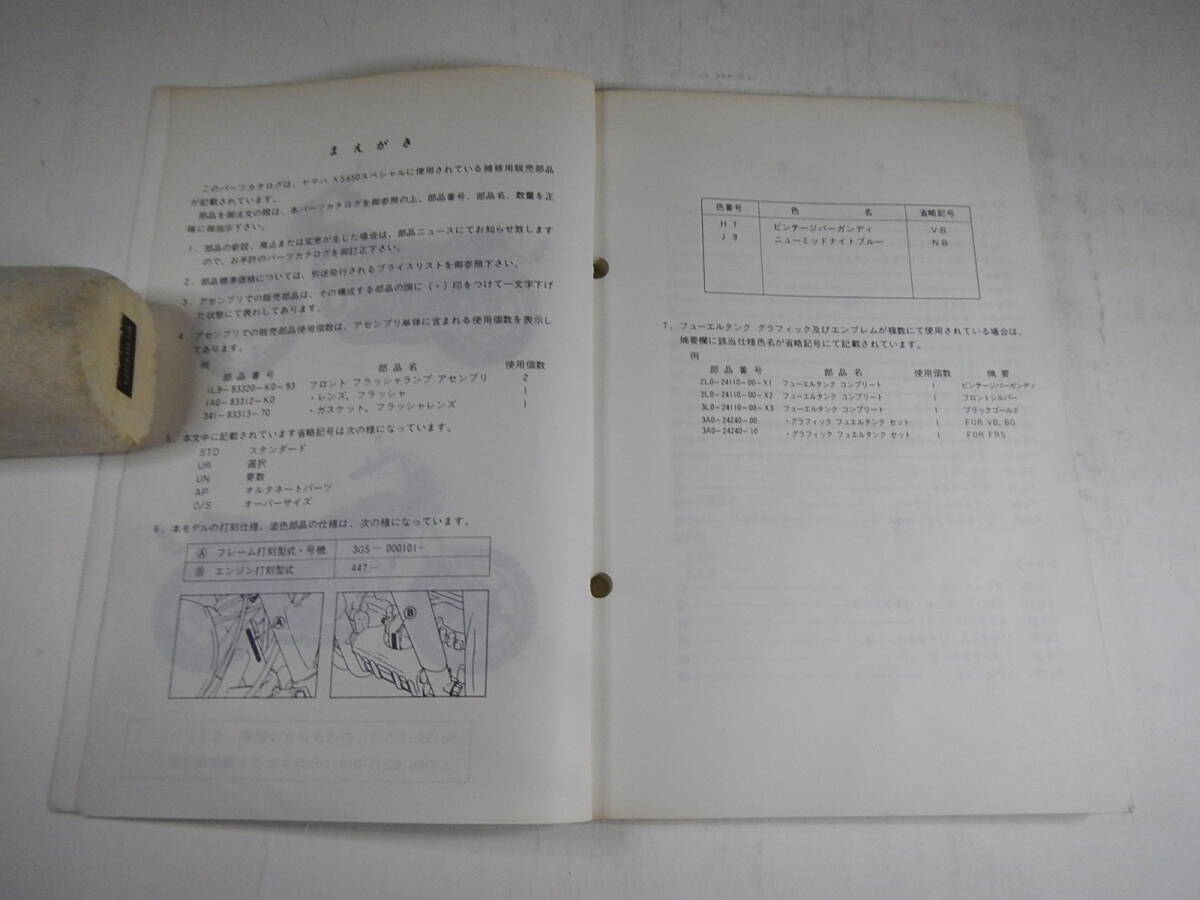 まえがき
このパーツカタログは、ヤマハ XS650スペシャルに使用されている補修用販売部品
が記載されています。
部品を御注文の際は、本パーツカタログを御参照の上、部品番号、部品名、数量を正
確に御指示下さい。
1. 部品の新設、廃止または変更が生じた場合は、部品ニュースにてお知らせ致します
ので、お手許のパーツカタログを御訂正下さい。
2. 部品標準価格については、別途発行されるプライスリストを御参照下さい。
3. アセンブリでの販売部品は、その構成する部品の頭に(・)印をつけて一文字下げ
た状態にて表わしてあります。
4. アセンブリでの販売部品使用個数は、アセンブリ単体に含まれる使用個数を表示し
てあります。
例
部品番号 部品名 使用個数
1L9-83320-K0-93 フロント フラッシャランプ アセンブリ 2
1A0-83312-K0 ・レンズ、フラッシャ 1
341-83313-70 ・ガスケット、フラッシャレンズ 1
5. 本文中に記載されています省略記号は次の様になっています。
STD スタンダード
UR 選択
UN 要数
AP オルタネートパーツ
O/S オーバーサイズ
6. 本モデルの打刻仕様、塗色部品の仕様は、次の様になっています。
Ⓐ フレーム打刻型式・号機 3G5-000101~
Ⓑ エンジン打刻型式 447-
Ⓐ
Ⓑ
色番号 色名 省略記号
H7 ビンテージバーガンディ VB
J9 ニューミッドナイトブルー NB
7. フューエルタンク グラフィック及びエンブレムが複数にて使用されている場合は、
摘要欄に該当仕様色名が省略記号にて記載されています。
例
部品番号 部品名 使用個数 摘要
2L0-24110-00-X1 フューエルタンク コンプリート 1 ビンテージバーガンディ
2L0-24110-00-X2 フューエルタンク コンプリート 1 フロントシルバー
3L0-24110-00-X3 フューエルタンク コンプリート 1 ブラックゴールド
3A0-24240-00 ・グラフィック フュエルタンク セット 1 FOR VB, BG
3A0-24240-10 ・グラフィック フュエルタンク セット 1 FOR FRS